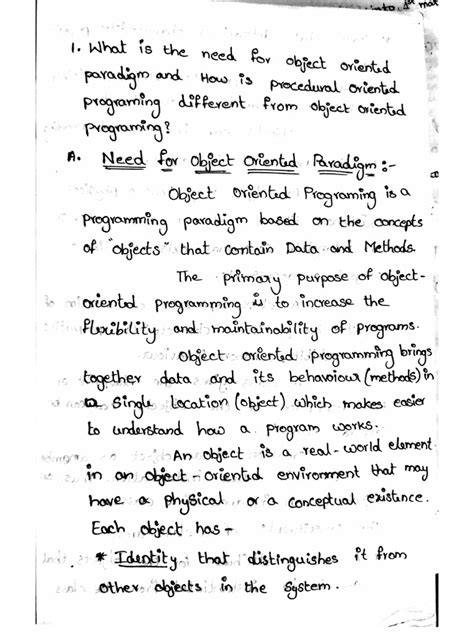 1. What is the need for object oriented
paradigm and How is procedural oriented
programing different from object oriented
programing?
A. Need for Object Oriented Paradigm:-
Object Oriented Programing is a
programming paradigm based on the concepts
of "objects" that contain Data and Methods.
The primary purpose of object-
oriented programming is to increase the
flexibility and maintainability of programs.
Object oriented programming brings
together data and its behaviour (methods) in
a single location (object) which makes easier
to understand how a program works.
An object is a real-world element
in an object-oriented environment that may
have a physical or a conceptual existence.
Each object has -
* Identity that distinguishes it from
other objects in the system.